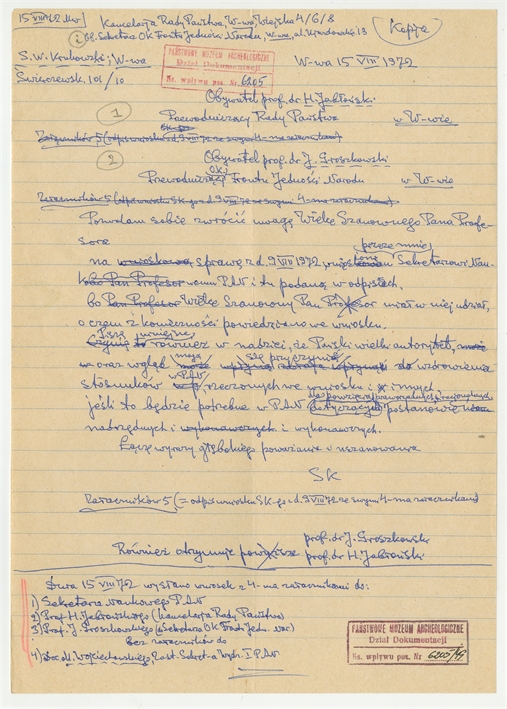 15 VIII 72 Kancelaria Rady Państwa, W-wa, Wiejska 4/6/8
2) Ob. Sekretarz O.K. Frontu Jedności Narodu, W-wa, al. Ujazdowskie 13
Kopja
S. W. Krukowski; W-wa
Świerczewsk. 101/10
PAŃSTWOWE MUZEUM ARCHEOLOGICZNE
Dział Dokumentacji
Nr. wpływu poz. Nr 6205
W-wa 15 VIII 1972
1
Obywatel prof. dr H. Jabłoński.
Przewodniczący Rady Państwa
w W-wie
Załączników 5 (odpis wniosku z d. 9 VIII 72 ze swymi 4-ma załącznikami)
2
Obywatel prof. dr J. Groszkowski
Przewodniczący O.K. Frontu Jedności Narodu
w W-wie
Załączników 5 (odpis wniosku SK-go z d. 9 VIII 72 ze swymi 4-ma załącznikami)
Pozwalam sobie zwrócić uwagę Wielce Szanownego Pana Profe-
sora
przeze mnie
na sprawę z d. 9 VIII 1972, Sekretarzowi Nau-
kowemu PAN i tu podaną w odpisach,
bo Pan Profesor Wielce Szanowny Pan Profesor miał w niej udział,
o czem z konieczności powiedziano we wniosku.
Piszę
Czynię to również w nadziei, że Pański wielki autorytet,
oraz wgląd mogą się przyczynić do uzdrowienia
w PAN
stosunków rzeczonych we wniosku i innych,
jeśli to będzie potrzebne w PAN dotyczących postanowień
nadrzędnych i wykonawczych i wykonawczych.
Łączę wyrazy głębokiego poważania i uszanowania
SK
Załączników 5 (= odpis wniosku SK-go z d. 9 VIII 72 ze swymi 4-ma załącznikami)
prof. dr J. Groszkowski
Również otrzymuje prof. dr H. Jabłoński
Dnia 15 VIII 72 wysłano wniosek z 4-ma załącznikami do:
1) Sekretarza Naukowego PAN
2) Prof. H. Jabłońskiego (Kancelaria Rady Państwa)
3) Prof. J. Groszkowskiego (Sekretarz O.K. Frontu Jedn. Nar.)
bez załączników do
4) Doc. dr. Wojciechowskiego, Zast. Sekret-a Wydz. I PAN
PAŃSTWOWE MUZEUM ARCHEOLOGICZNE
Dział Dokumentacji
Nr. wpływu poz. Nr 6205/49